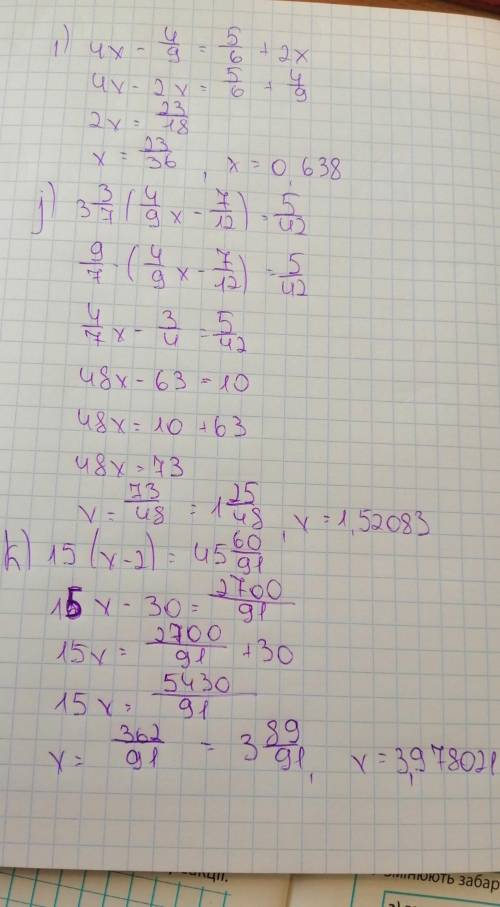 i) 4x - 4/9 = 5/6 + 2x
4x - 2x = 5/6 + 4/9
2x = 23/18
x = 23/36, x = 0,638
j) 3 3/7 (4/9 x - 7/12) = 5/42
9/7 · (4/9 x - 7/12) = 5/42
4/7 x - 3/4 = 5/42
48x - 63 = 10
48x = 10 + 63
48x = 73
x = 73/48 = 1 25/48, x = 1,52083
k) 15 (x - 2) = 45 60/91
15x - 30 = 2700/91
15x = 2700/91 + 30
15x = 5430/91
x = 362/91 = 3 89/91, x = 3,978021
змінюють забар